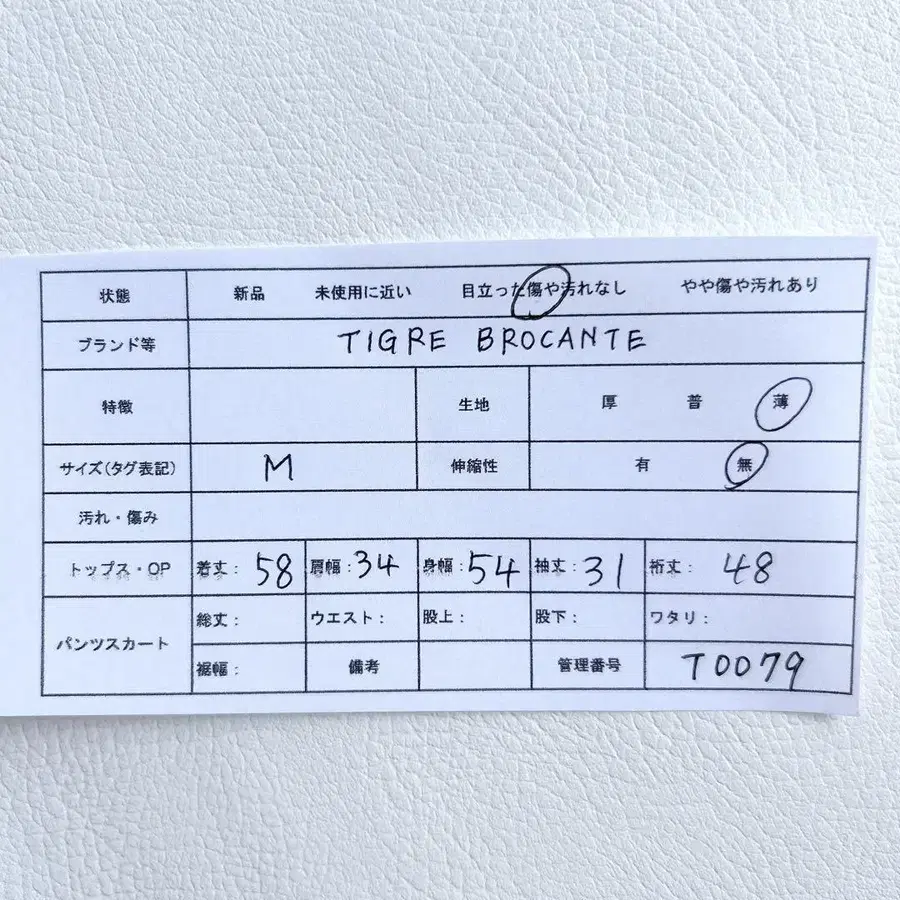 状態 新品 未使用に近い 目立った傷や汚れなし やや傷や汚れあり
ブランド等 TIGRE BROCANTE
特徴 生地 厚 普 薄
サイズ(タグ表記) M 伸縮性 有 無
汚れ・傷み
トップス・OP 着丈: 58 肩幅: 34 身幅: 54 袖丈: 31 裄丈: 48
パンツスカート
総丈: ウエスト: 股上: 股下: ワタリ:
裾幅: 備考 管理番号 T0079